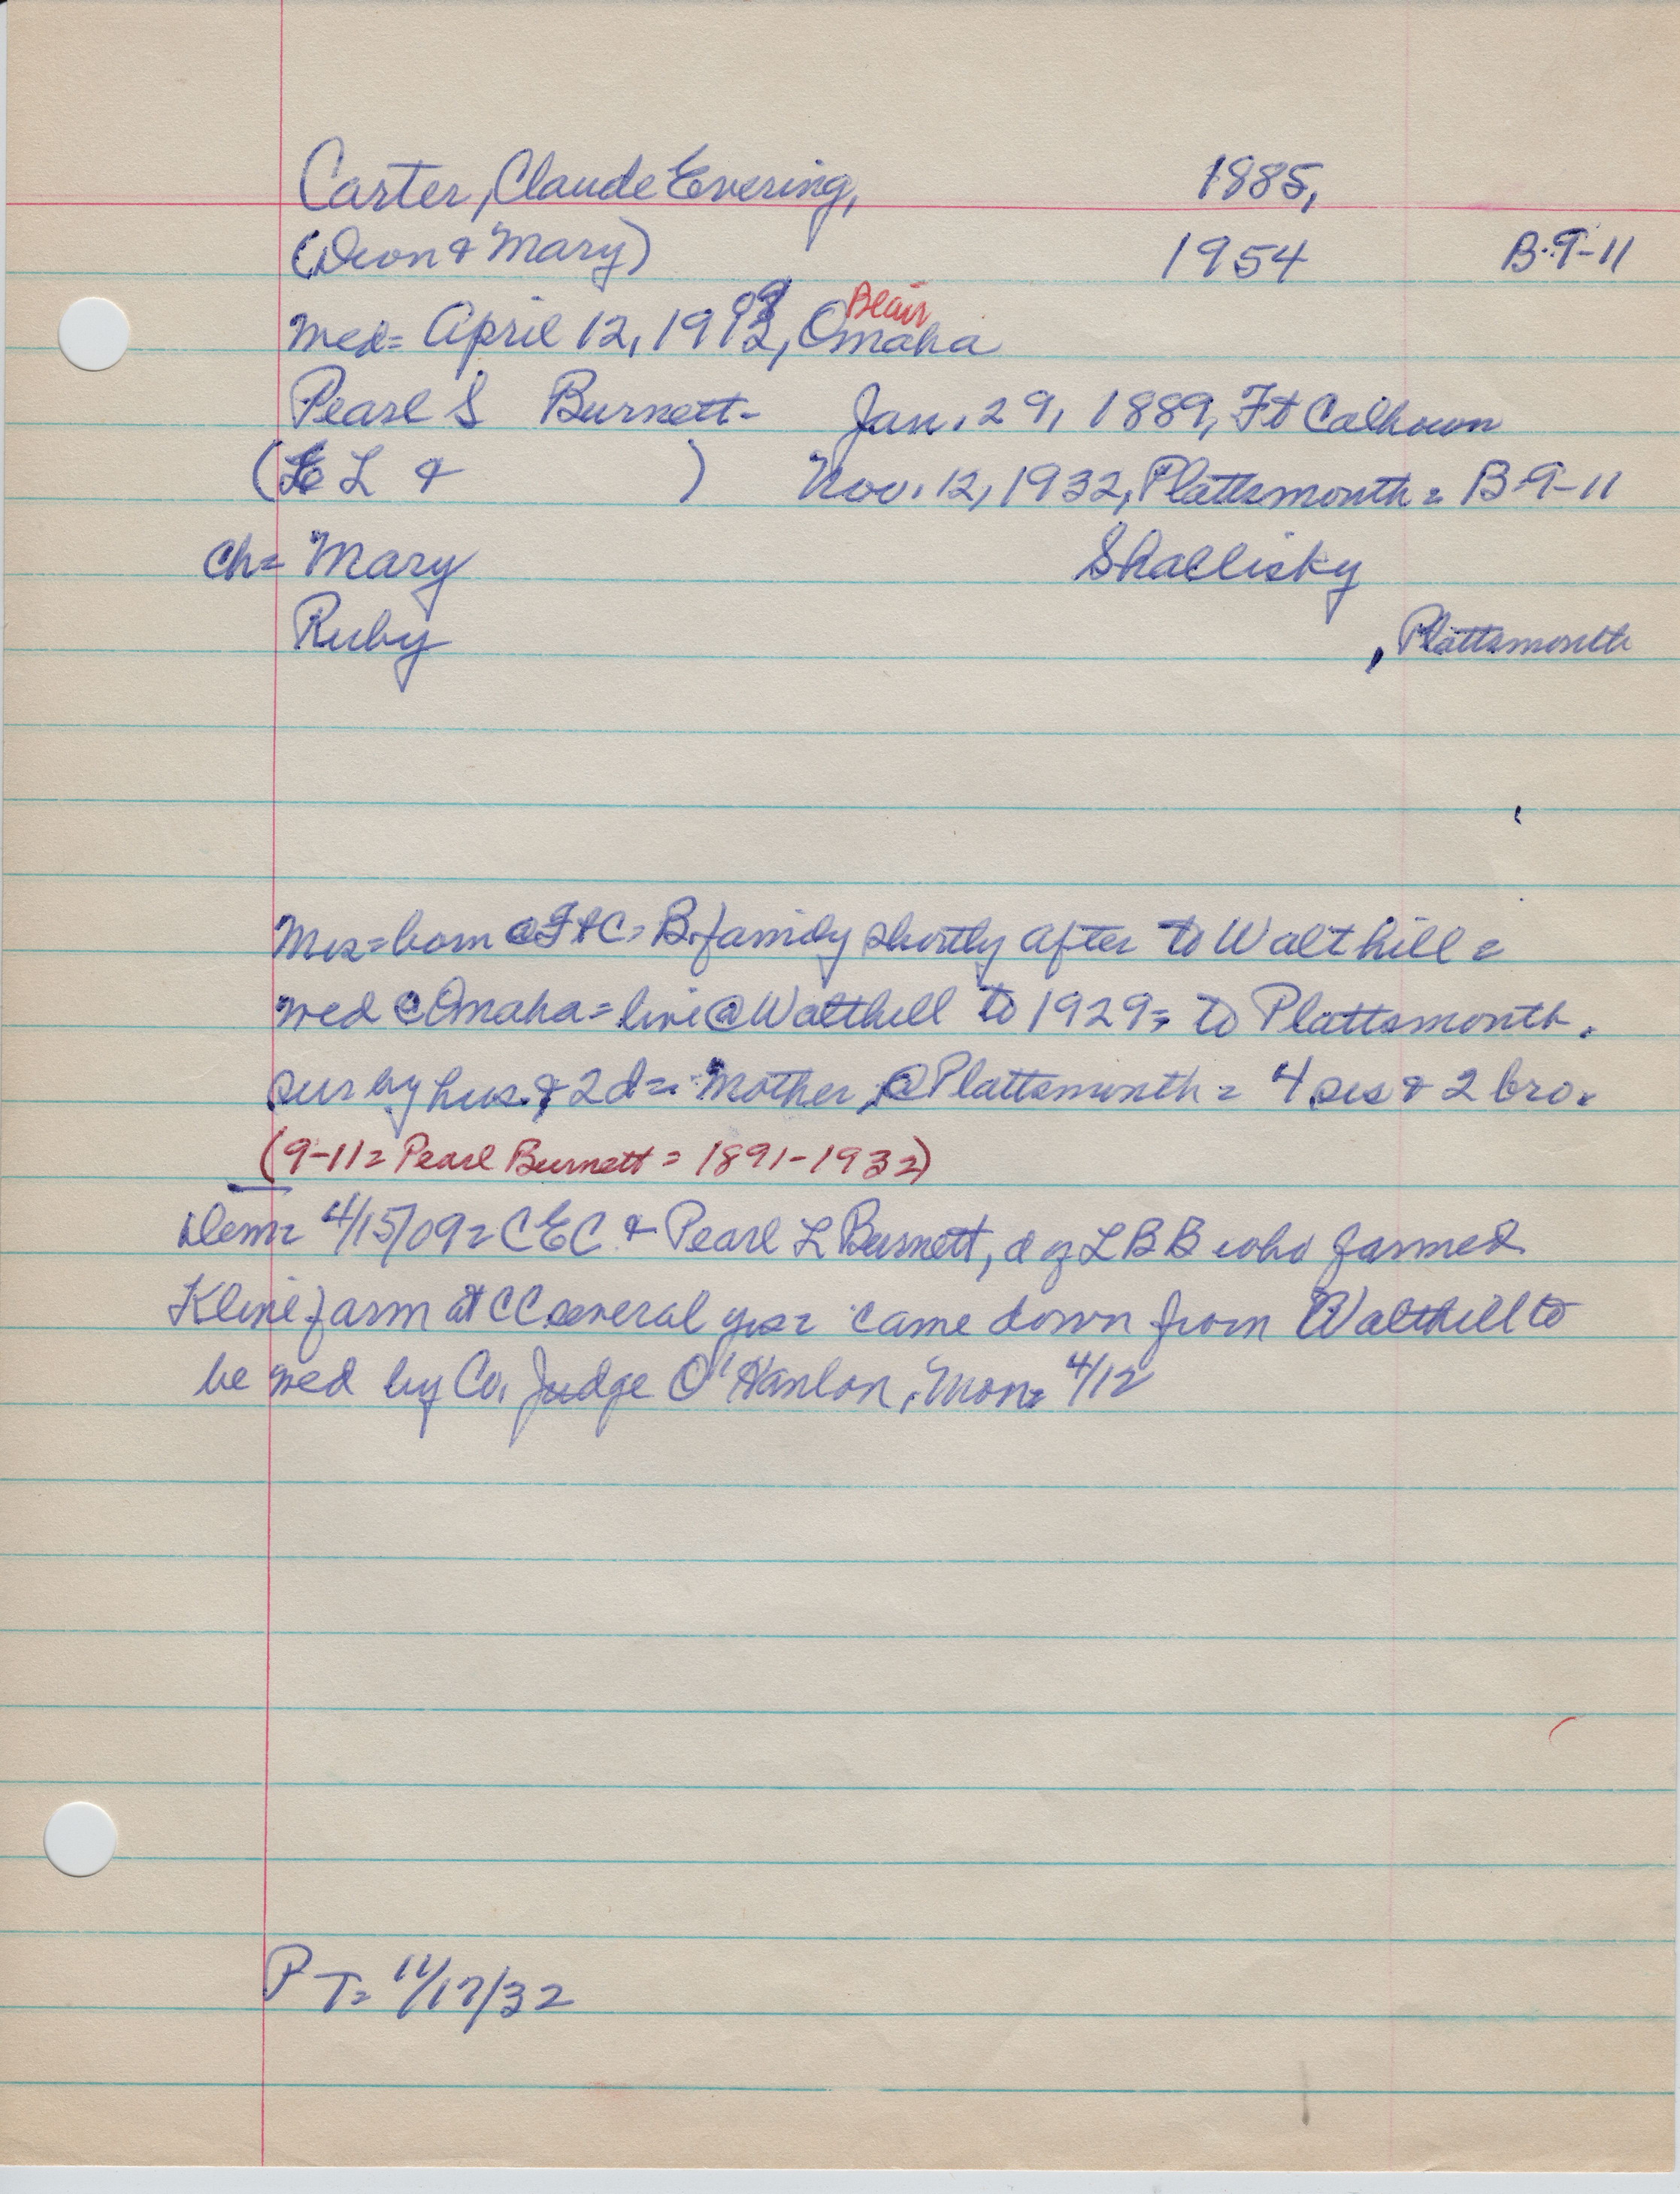 Carter, Claude Evering, 1885,
(Deon & Mary) 1954 B-9-11
med= April 12, 1909, Omaha Blair
Pearl S Burnett- Jan. 29, 1889, Ft Calhoun
( L & ) Nov. 12, 1932, Plattsmonth = B-9-11
Ch= Mary Shallisky
Ruby , Plattsmonth
Mrs= born @ Ft C= B. family shortly after to Walthill =
med @ Omaha= live @ Walthill to 1929= to Plattsmonth.
sur by hus. & 2 d= Mother @ Plattsmonth = 4 sis & 2 bro.
(9-11= Pearl Burnett = 1891-1932)
Dem= 4/15/09= CEC & Pearl L Burnett, d of LBB who farmed
Kline farm at CC several yrs= came down from Walthill to
be med by Co. Judge O'Hanlon, Mon= 4/12
PT= 11/17/32